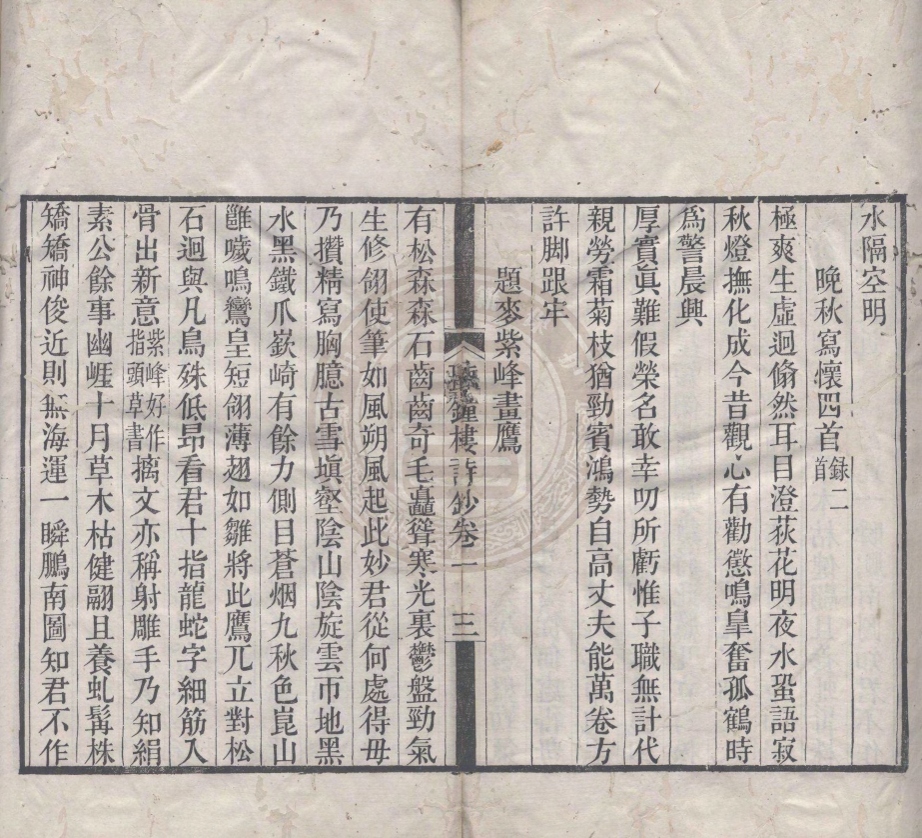 水隔空明
晚秋寫懷四首錄二首
極爽生虛迥翛然耳目澄荻花明夜水蛩語寂
秋燈撫化成今昔觀心有勸懲鳴臯奮孤鶴時
爲警晨興
厚實眞難假榮名敢幸叨所虧惟子職無計代
親勞霜菊枝猶勁賓鴻勢自高丈夫能萬卷方
許脚跟牢
題麥紫峰畫鷹
鐘樓詩鈔卷一 三
有松森森石齒齒奇毛矗聳寒光裏鬱盤勁氣
生修翎使筆如風朔風起此妙君從何處得毋
乃攢精寫胸臆古雪塡壑陰山陰旋雲帀地黑
水黑鐵爪嶔崎有餘力側目蒼烟九秋色崑山
雝噦鳴鸞皇短翎薄翅如雛將此鷹兀立對松
石迥與凡鳥殊低昂看君十指龍蛇字細筋入
骨出新意紫峰好作指頭草書摛文亦稱射雕手乃知絹
素公餘事幽崕十月草木枯健翮且養虬髯株
矯矯神俊近則無海運一瞬鵬南圖知君不作